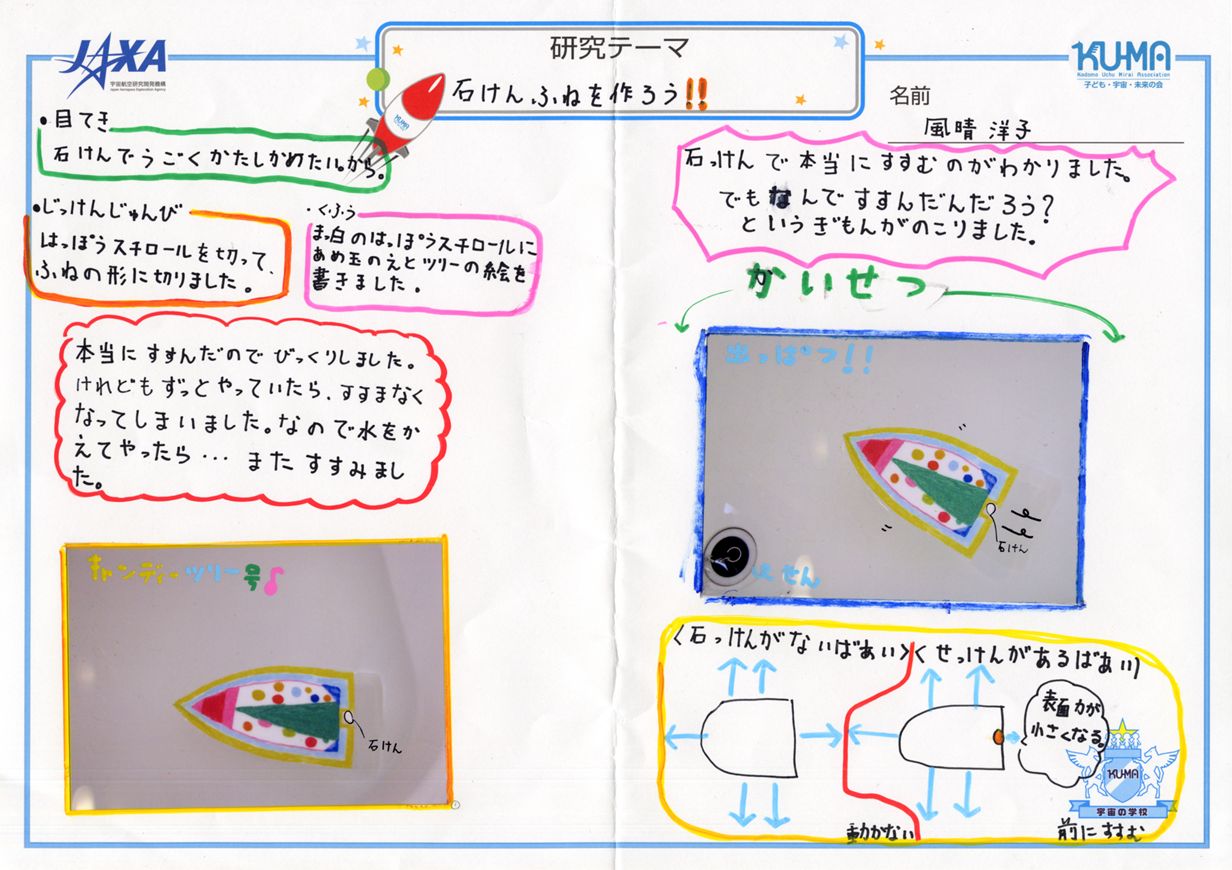 JAXA
宇宙航空研究開発機構
Japan Aerospace Exploration Agency
研究テーマ
石けんふねを作ろう!!
KUMA
KUMA
Kodomo Uchu Mirai Association
子ども・宇宙・未来の会
名前
風晴 洋子
・目てき
石けんでうごくかたしかめたいから。
・じっけんじゅんび
はっぽうスチロールを切って、
ふねの形に切りました。
・くふう
まっ白のはっぽうスチロールに
あめ玉のえとツリーの絵を
書きました。
本当にすすんだのでびっくりしました。
けれどもずっとやっていたら、すすまなく
なってしまいました。なので水をか
えてやったら… またすすみまし
た。
キャンディーツリー号♪
石けん
石っけんで本当にすすむのがわかりました。
でもなんですすんだんだろう?
というぎもんがのこりました。
かいせつ
出っぱつ!!
石けん
せん
<石っけんがないばあい>
<せっけんがあるばあい>
表面力が
小さくなる。
KU-MA
宇宙の学校
動かない
前にすすむ